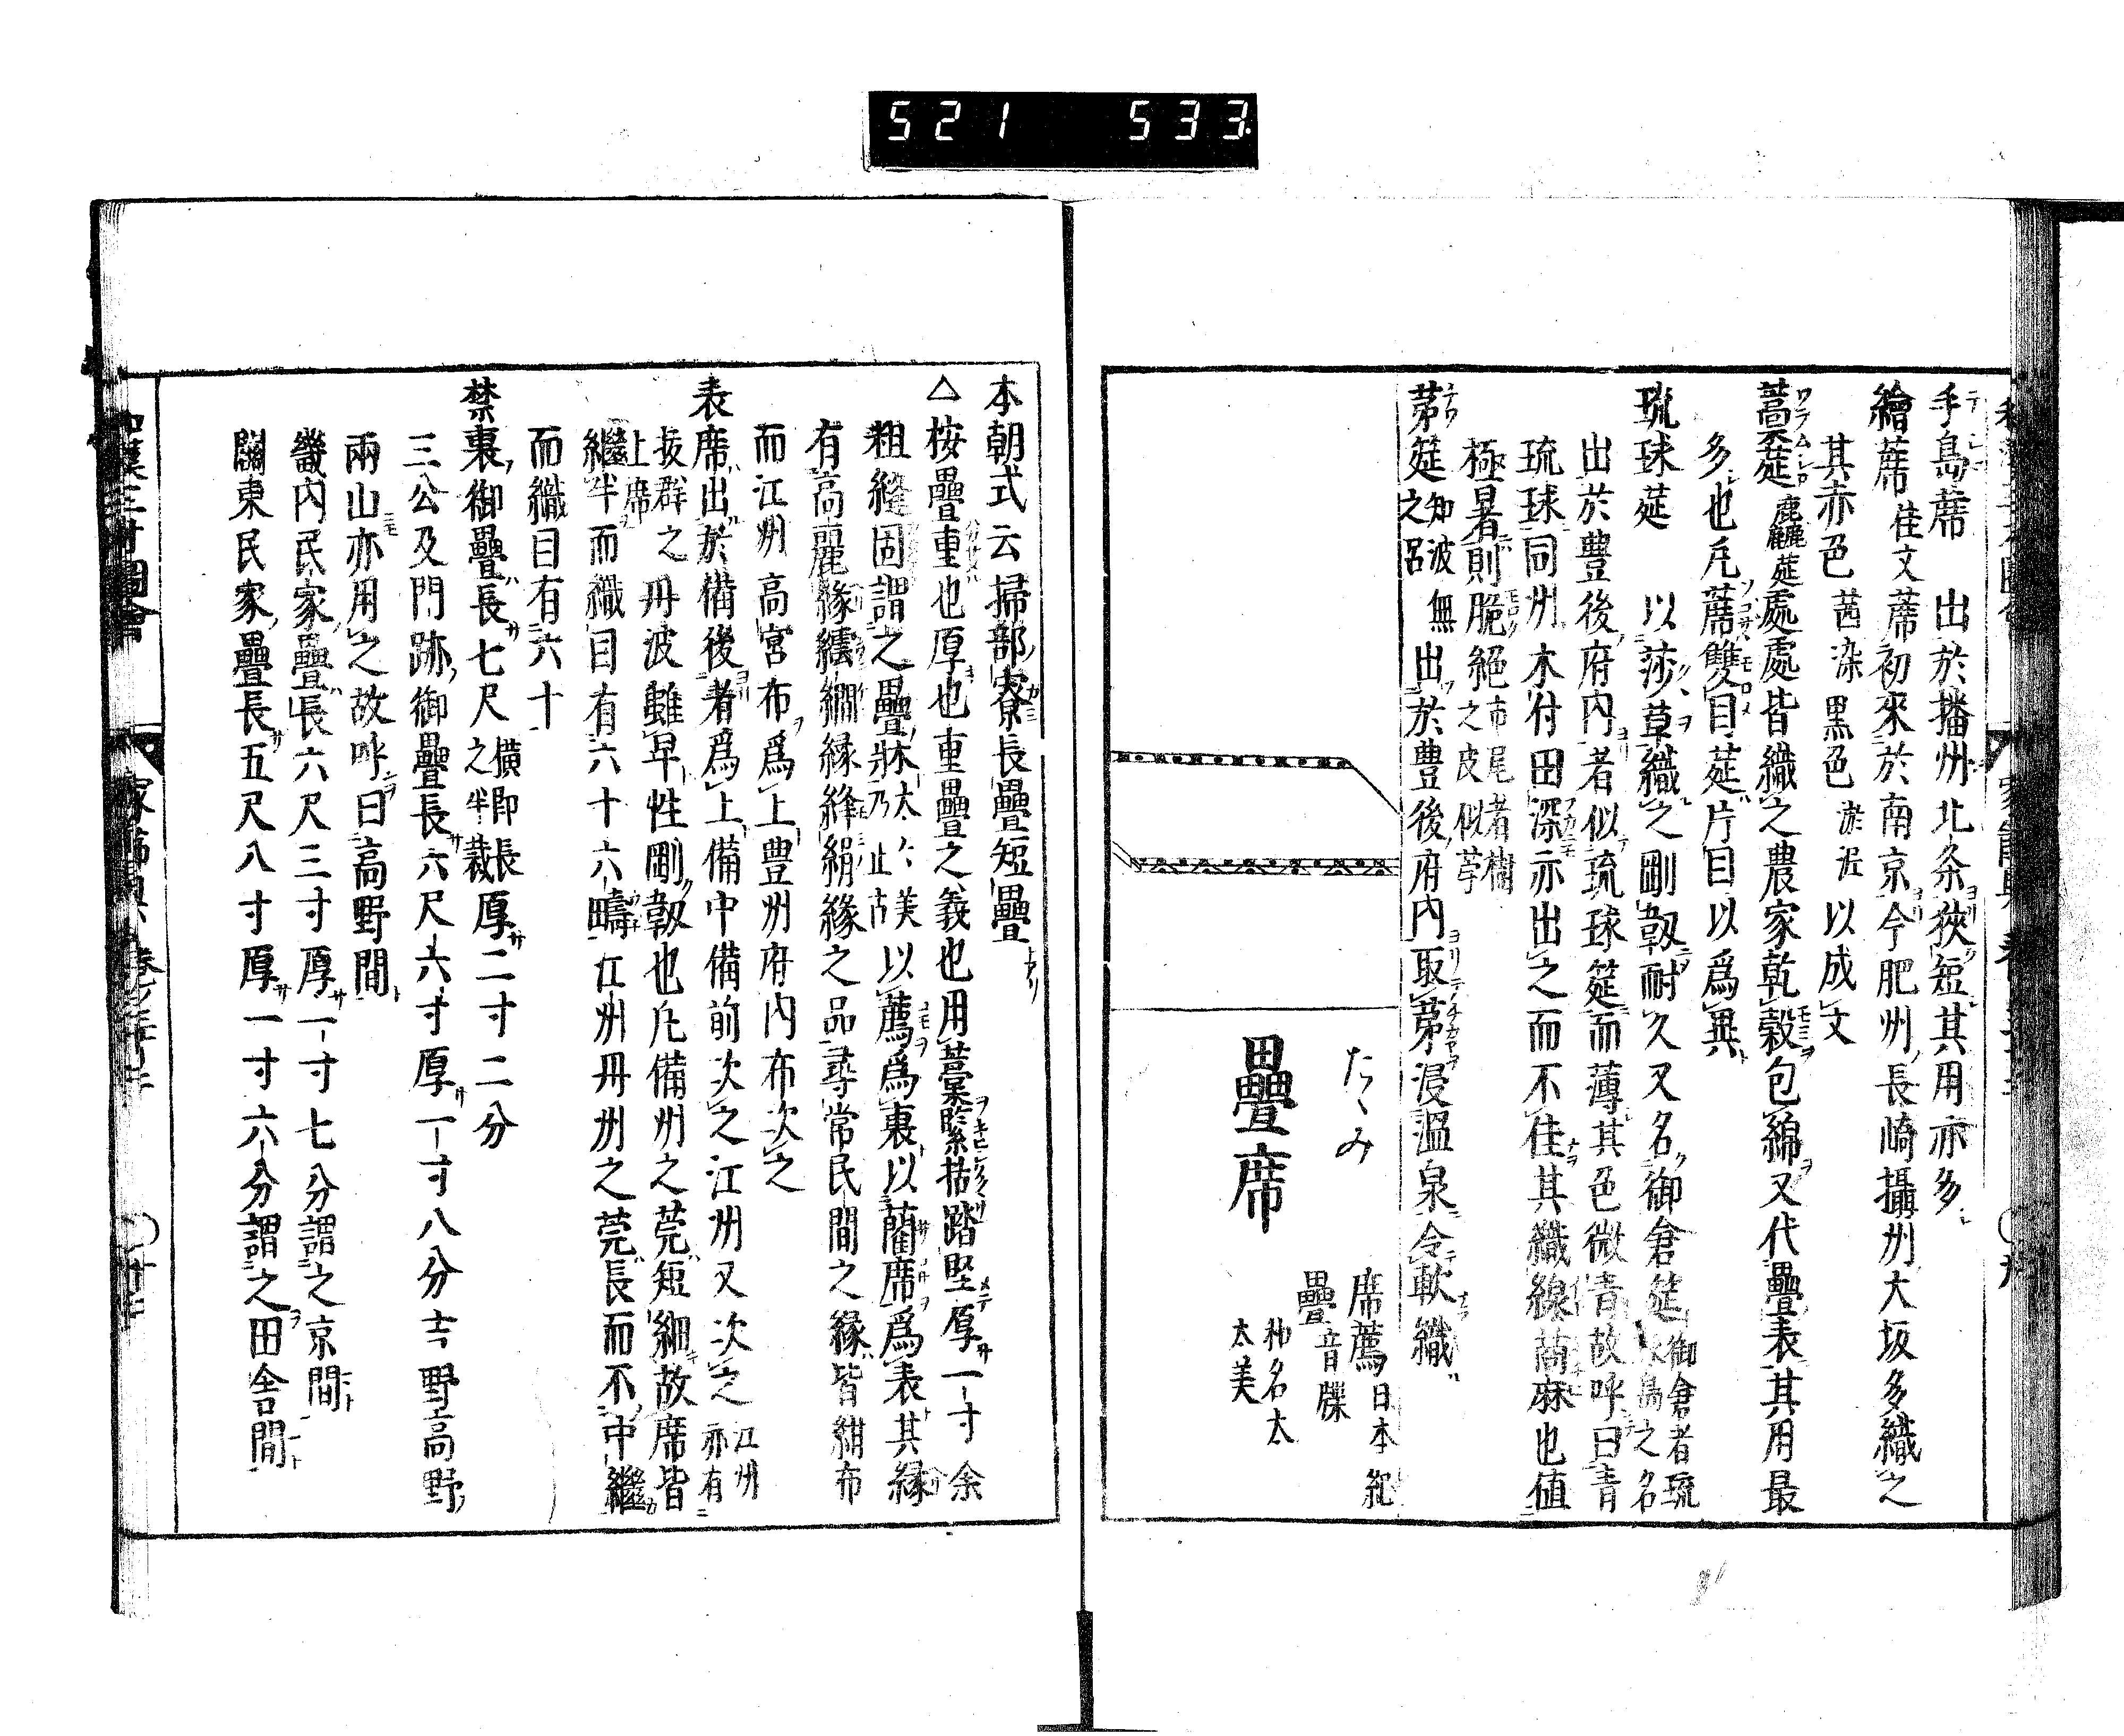 521 533
手島蓆 出於播州北条狹短其用亦多
繪蓆 佳文蓆初來於南京今肥州長崎攝州大坂多織之
其赤色茜染黒色泥以成文
藁莚 麤莚處處皆織之農家乾穀包綿又代疊表其用最
多也凡蓆雙目莚片目以爲異
琉球莚 以莎草織之剛韌耐久又名御倉莚 御倉者琉
之名
出於豊後府内者似琉球莚而薄其色微青故呼曰青
琉球同州木付田深亦出之而不佳其織線苘麻也値
極暑則脆絕 市尾者樹
之皮似苧
茅莚 知波無
之呂
出於豊後府内取茅浸溫泉令軟織
たゝみ
疊席
席薦 日本紀
疊 音牒
和名太
太美
本朝式云掃部寮長疊短疊
△按疊重也厚也重疊之義也用藁緊括踏堅厚一寸余
粗縫固謂之疊牀 太々美
乃止古
以薦爲裏以藺席爲表其縁
有高麗縁繧繝縁絳絹緣之品尋常民間之縁皆紺布
而江州高宮布爲上豊州府内布次之
表席出於備後者爲上備中備前次之江州又次之 江州
亦有
拔群之
上席
丹波雖早性剛韌也凡備州之莞短細故席皆
繼半而織目有六十六疇江州丹州之莞長而不中繼
而織目有六十
禁裏御疊長七尺 橫即長
之半裁
厚二寸二分
三公及門跡御疊長六尺六寸厚一寸八分吉野高野
兩山亦用之故呼曰高野間
畿内民家疊長六尺三寸厚一寸七分謂之京間
關東民家疊長五尺八寸厚一寸六分謂之田舎間